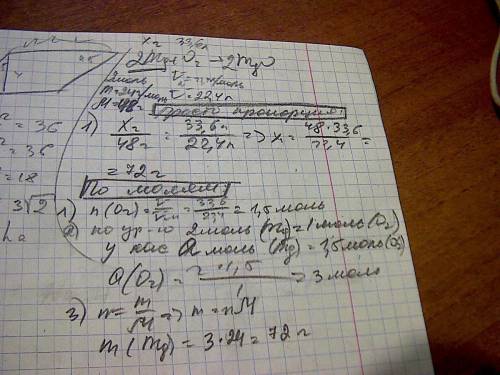 x г 33,6л
2Mg+O₂ → 2MgO
2моль
V = 22,4л
M=48г
1) x г / 48г = 33,6л / 22,4л => x = 48·33,6 / 22,4 =
= 72 г
По молям
1) n(O₂) = V / Vm = 33,6 / 22,4 = 1,5 моль
2) по ур-ю 2моль (Mg) = 1моль (O₂)
у нас a моль (Mg) = 1,5 моль (O₂)
a(O₂) = 2·1,5 / 1 = 3 моль
3) n = m / M => m = nM
m (Mg) = 3·24 = 72 г
= 36
= 36
= 18
3√2